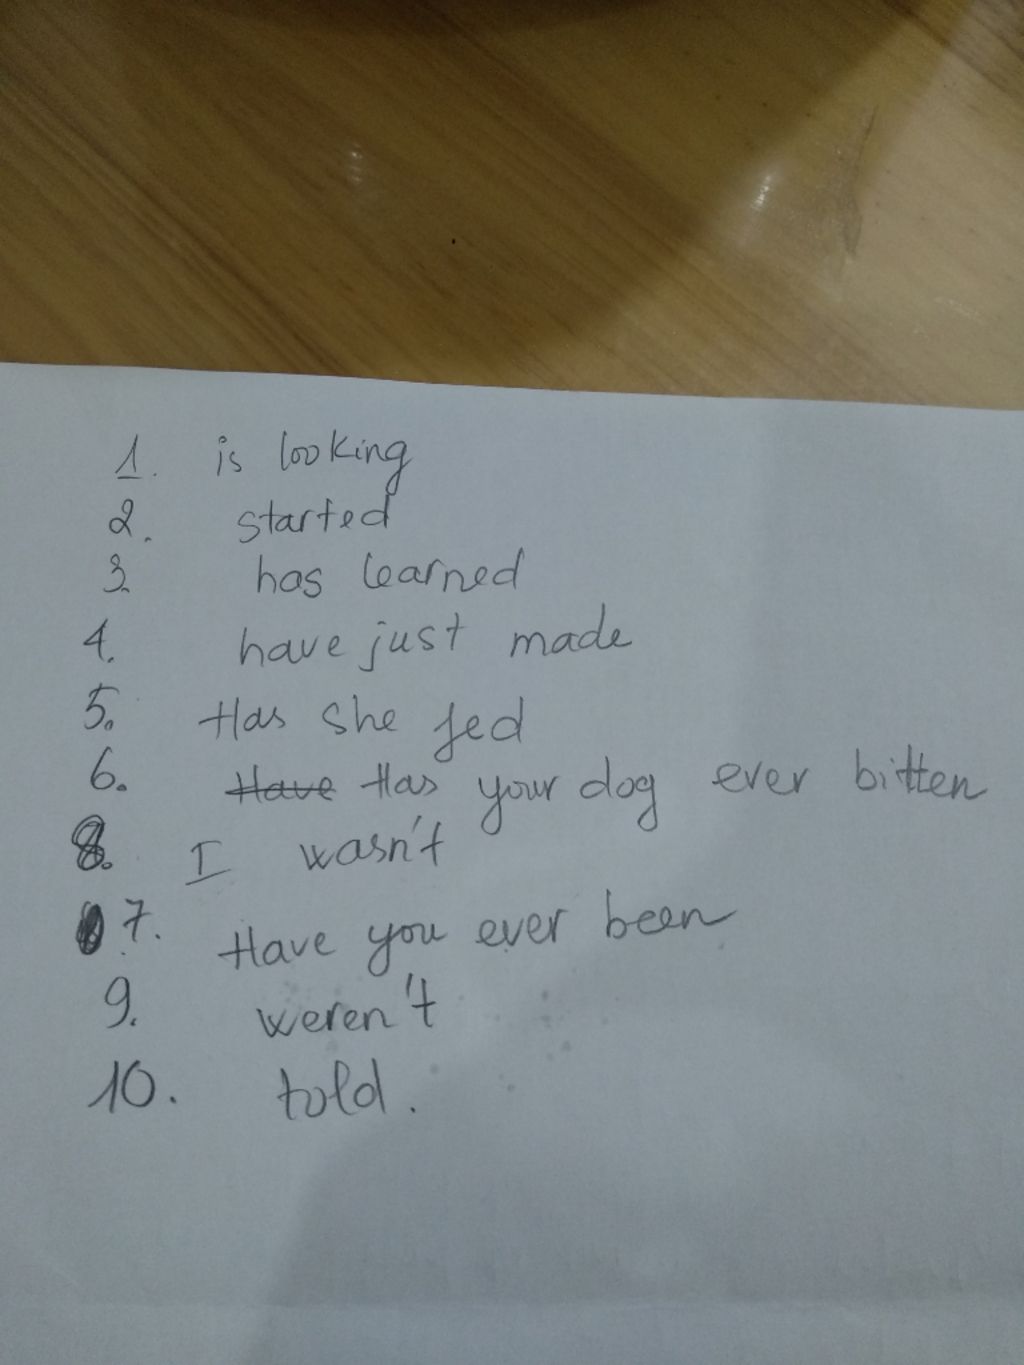 1. is looking
2. started
3. has learned
4. have just made
5. Has she fed
6. Have Has your dog ever bitten
8. I wasn't
7. Have you ever been
9. weren't
10. told.